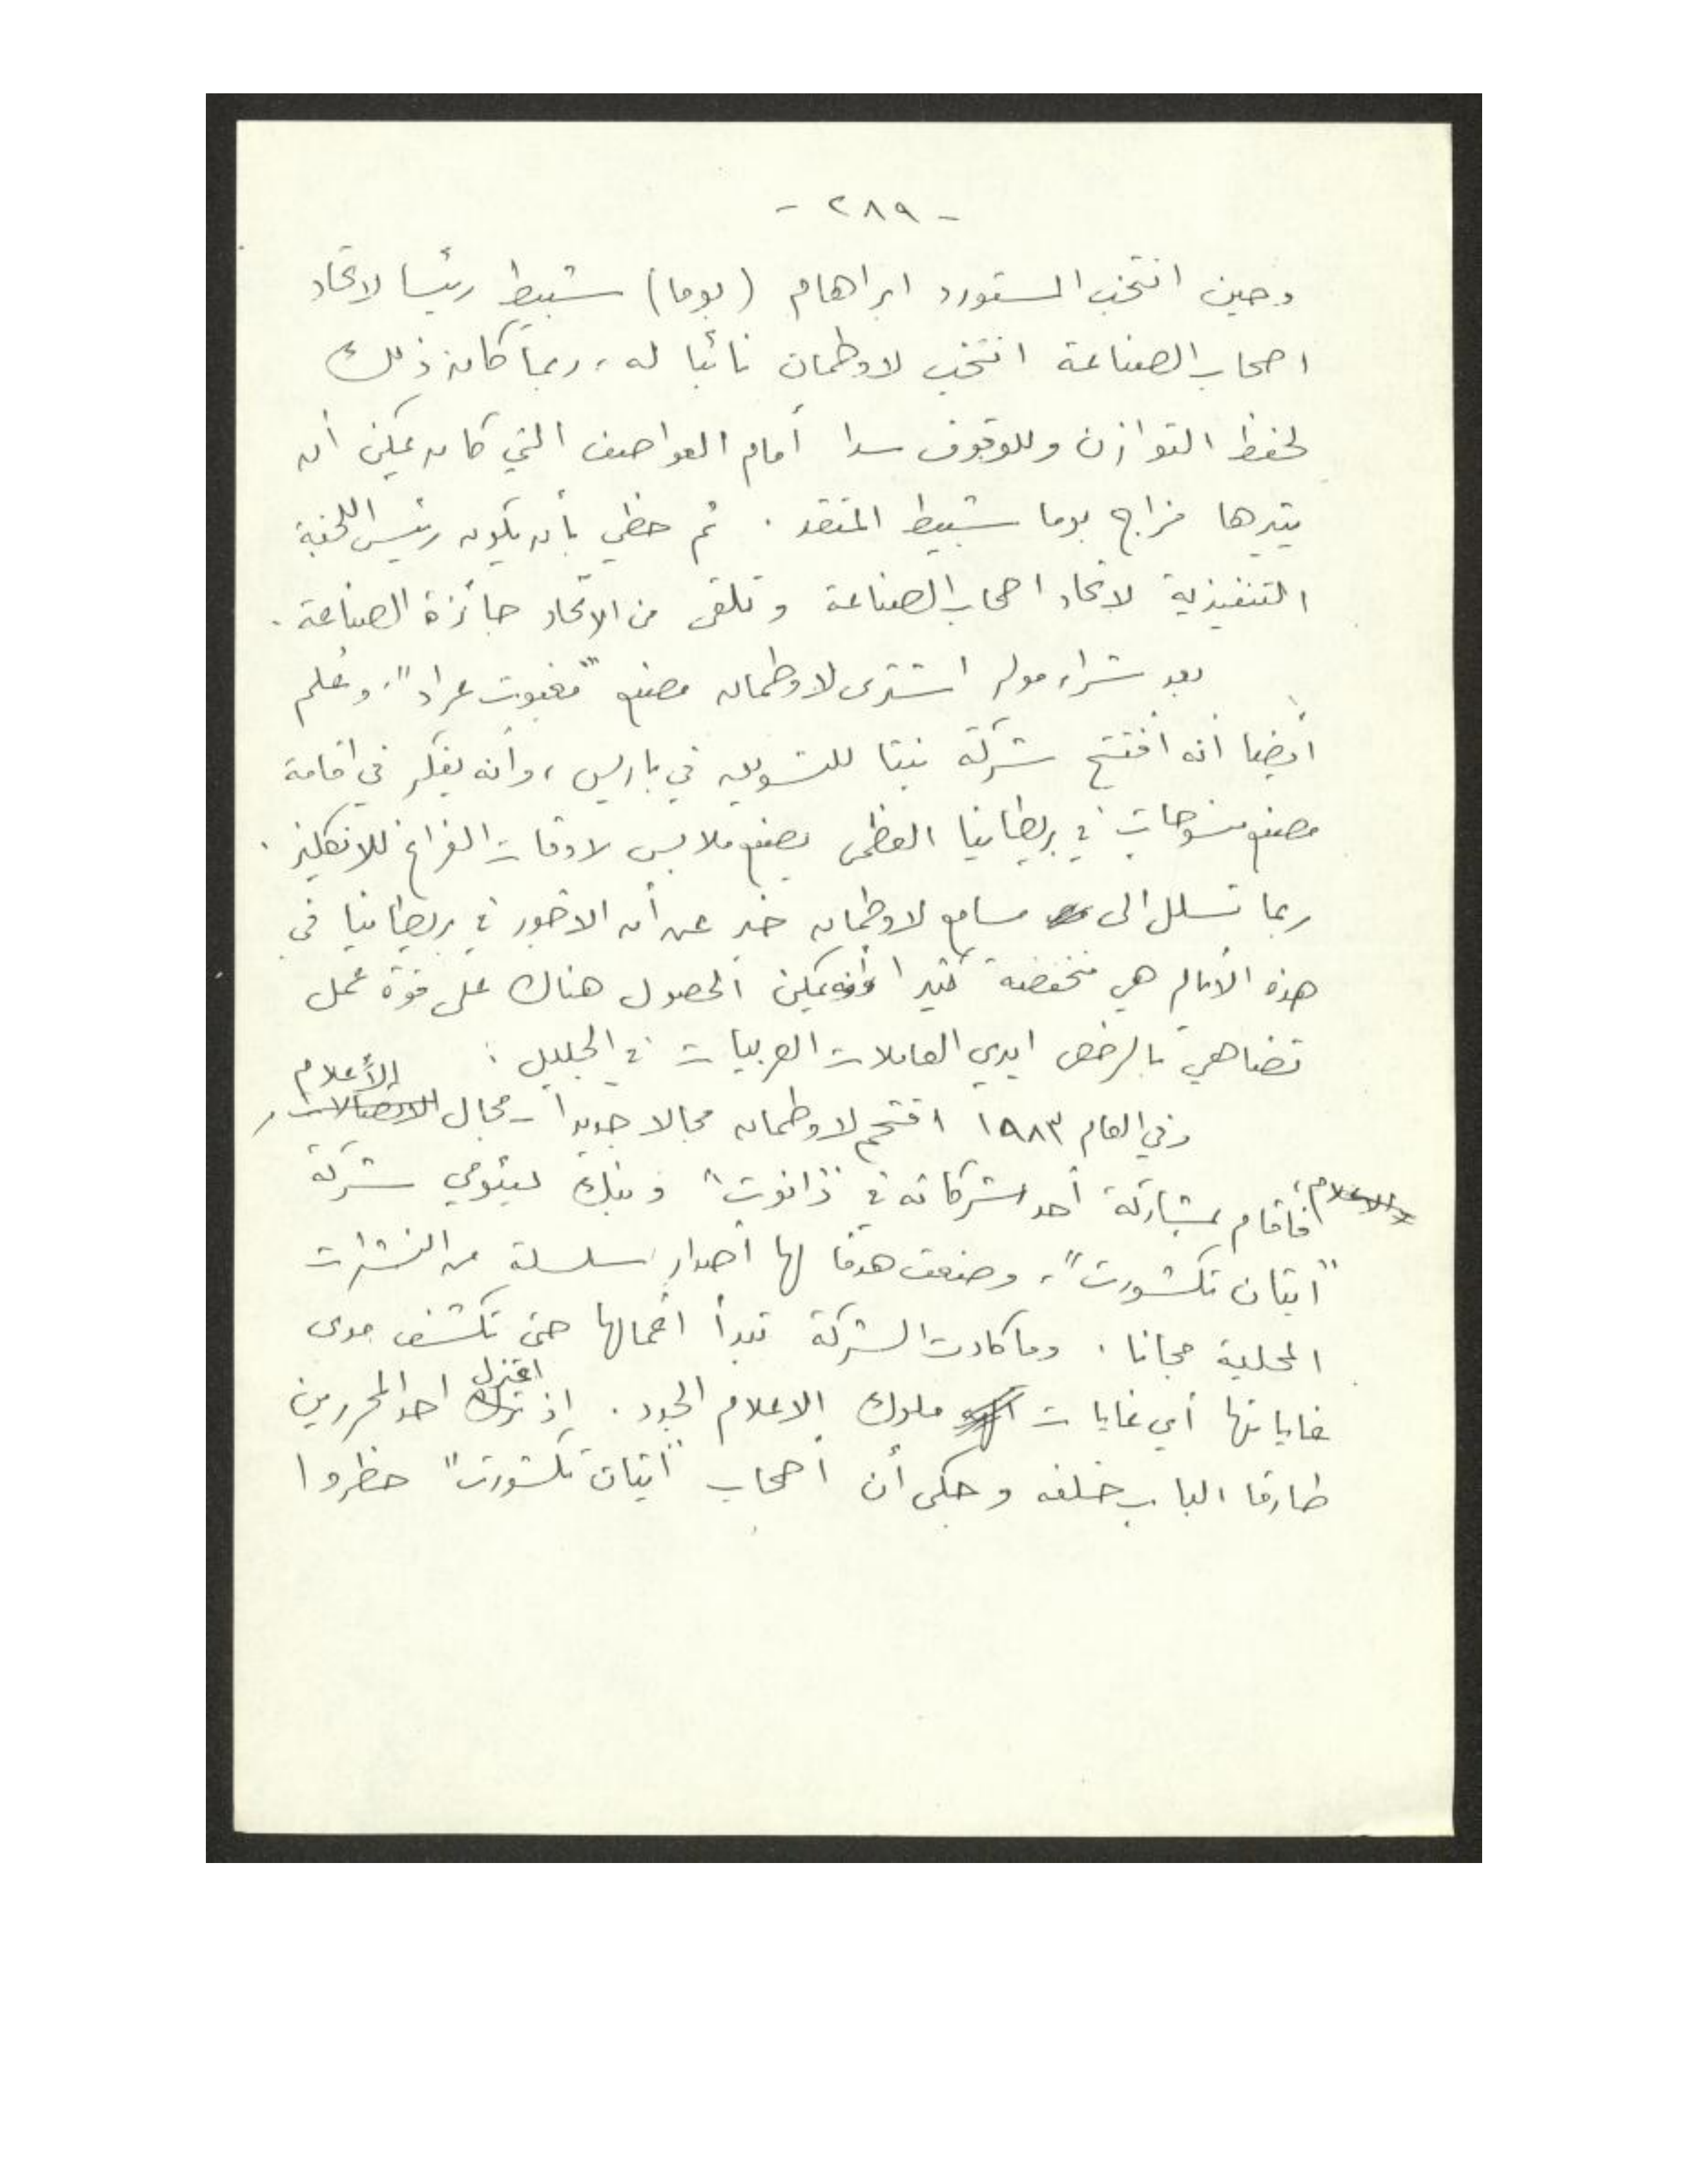 - ٢٨٩ -
وحين انتخب المستورد ابراهام (بوما) شبيط رئيسا لاتحاد
اصحاب الصناعة انتخب لاوطمان نائبا له، ربما كان ذلك
لحفظ التوازن وللوقوف سدا أمام العواصف التي كان يمكن أن
يثيرها مزاج بوما شبيط المتقد . ثم حظي بأن يكون رئيس اللجنة
التنفيذية لاتحاد اصحاب الصناعة وتلقى من الاتحاد جائزة الصناعة .
بعد شراء مولر اشترى لاوطمان مصنع "مغبوت عراد"، وعُلم
أيضا انه افتتح شركة بيتا للتسويق في باريس، وانه يفكر في اقامة
مصنع منسوجات في بريطانيا العظمى يصنع ملابس لاوقات الفراغ للانكليز .
ربما تسلل الى مسامع لاوطمان خبر عن أن الاجور في بريطانيا في
هذه الأيام هي منخفضة كثيرا وأنه يمكن الحصول هناك على قوة عمل
تضاهي بالرخص ايدي العاملات العربيات في الجليل :
وفي العام ١٩٨٣ اقتحم لاوطمان مجالا جديدا - مجال الأعلام
فاقام بمشاركة أحد شركائه في "زانوت" وبنك ليئومي شركة
"ايتان تكشورت"، وضعت هدفا لها أصدار سلسلة من النشرات
المحلية مجانا . وما كادت الشركة تبدأ اعمالها حتى تكشف مدى
غاياتها أي غايات ملوك الاعلام الجدد . إذ اعتزل احد المحررين
طارقا الباب خلفه وحكى أن أصحاب "ايتان تكشورت" حظروا